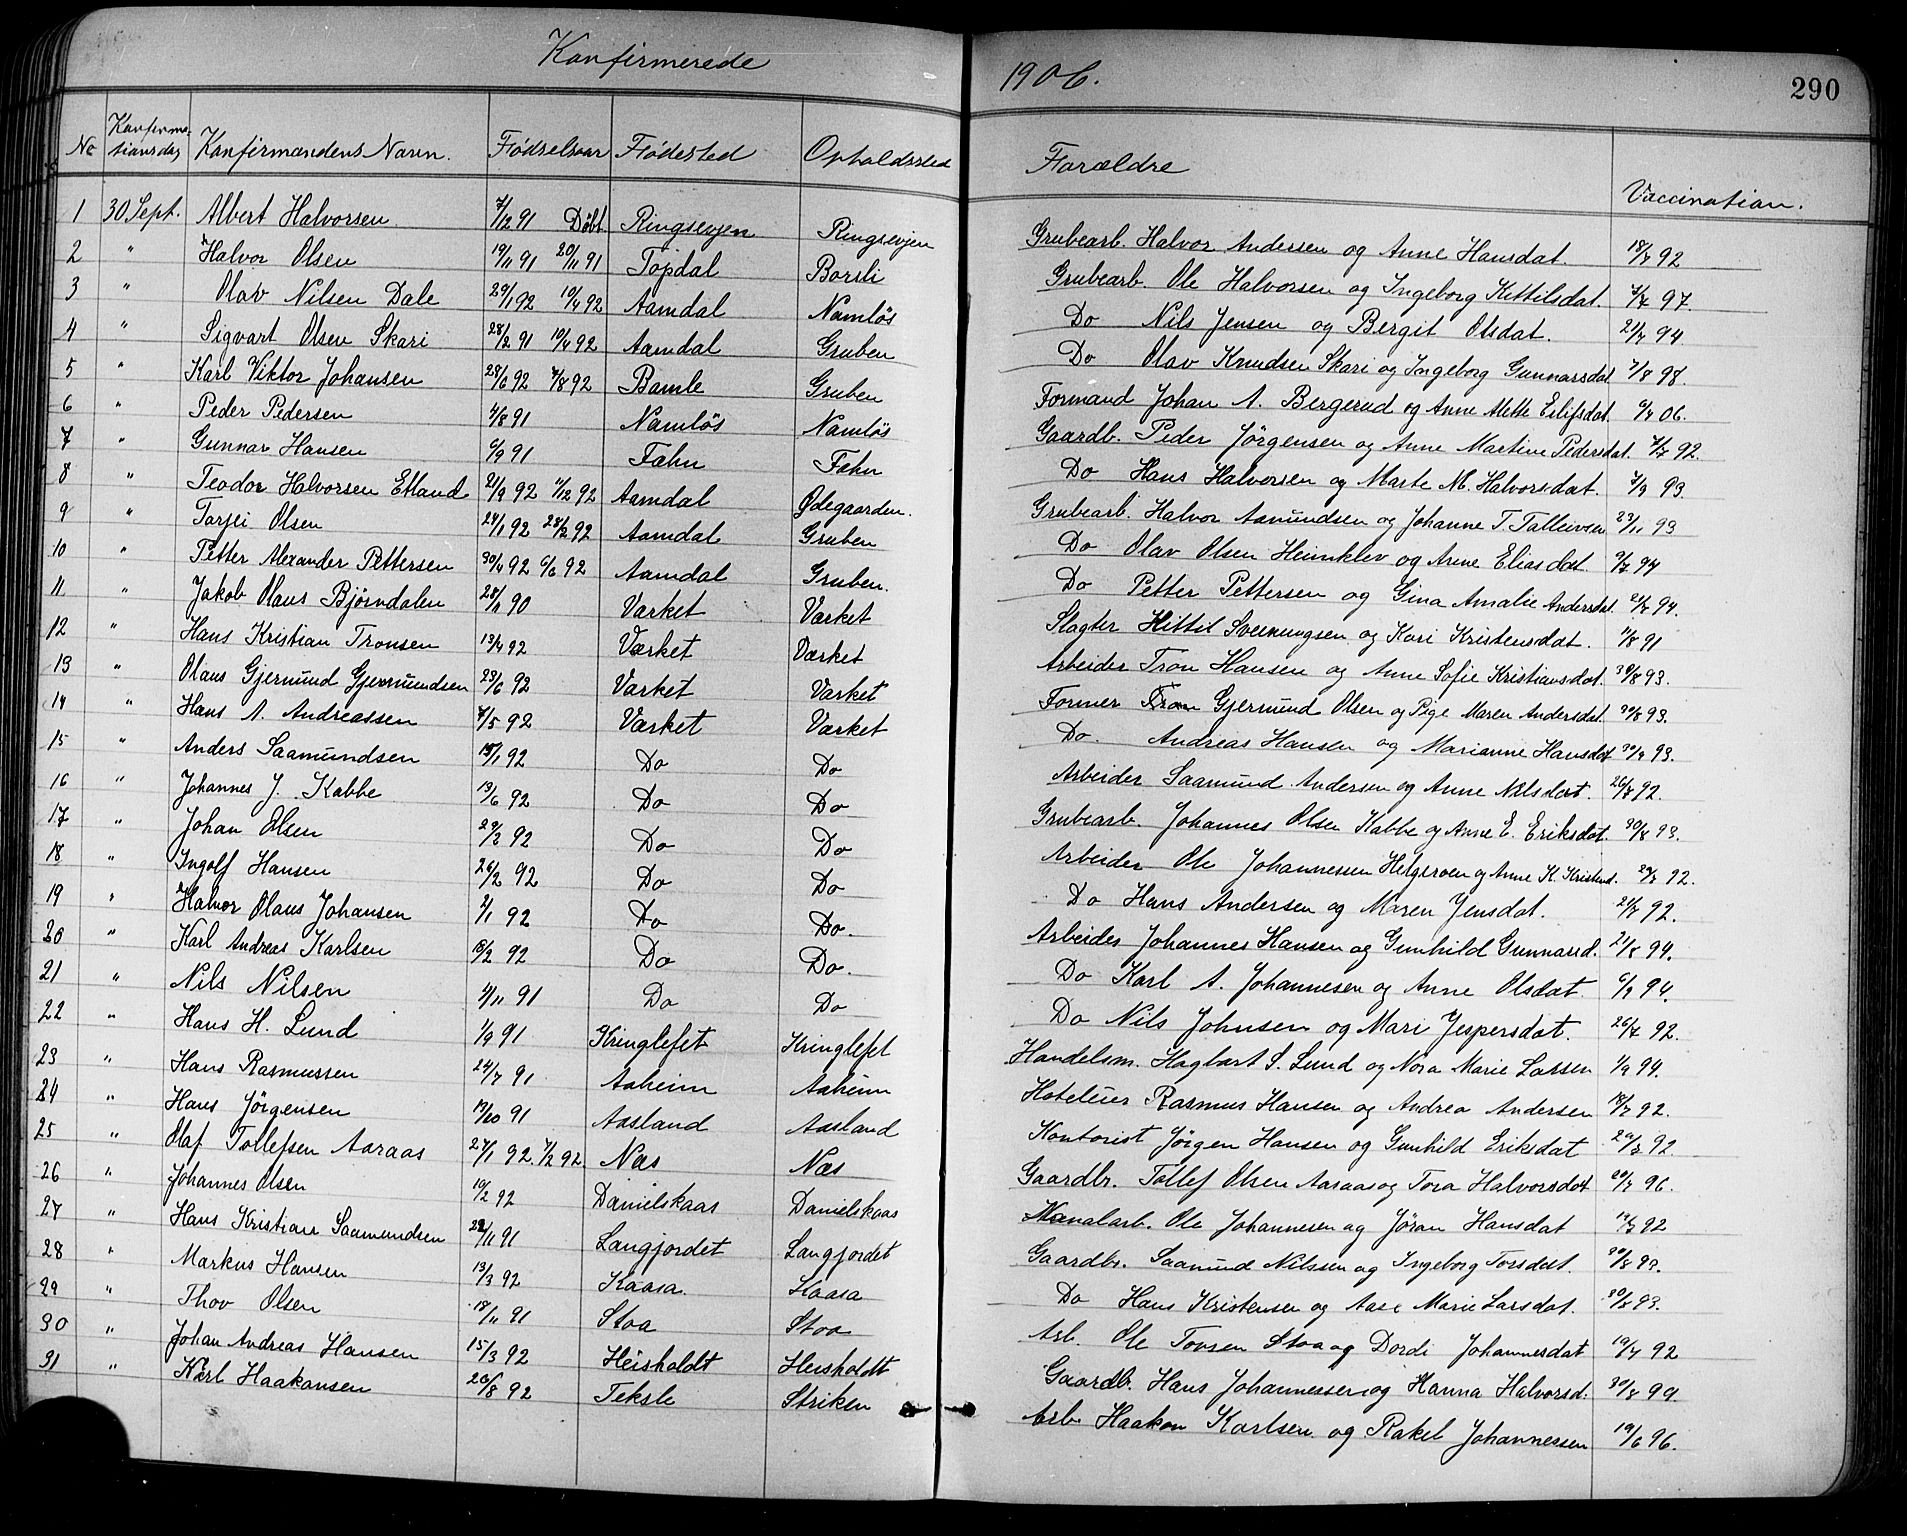 Konfirmerede 1906. 290
No Konfirma-tionsdag Konfirmandens Navn. Fødselsaar Fødested Opholdssted Forældre Vaccination.
1 30 Sept. Albert Halvorsen 7/12 91 Døbt Ringsevjen Ringsevjen Grubearb. Halvor Andersen og Anne Hansdat. 18/7 92
2 " Halvor Olsen 19/11 91 20/11 91 Topdal Borsli Grubearb. Ole Halvorsen og Ingeborg Kittilsdat. 97.
3 " Olav Nilsen Dale 29/1 92 10/4 92 Aamdal Namløs Do Nils Jensen og Bergit Olsdat. 21/7 94
4 " Sigvart Olsen Skari 28/2 91 10/4 92 Aamdal Gruben Do Olav Knudsen Skari og Ingeborg Gunnarsdat 98.
5 " Karl Viktor Johansen 28/6 92 7/8 92 Bamle Gruben Formand Johan A. Bergerud og Anne Mette Eslifsdat. 06.
6 " Peder Pedersen 4/8 91 Namløs Namløs Gaardb. Peder Jørgensen og Anne Martine Pedersdat. 92.
7 " Gunnar Hansen 6/9 91 Fahn Fahn Do Hans Halvorsen og Marte M. Halvorsdat. 7/9 93
8 " Teodor Halvorsen Etland 21/9 92 11/12 92 Aamdal Ødegaarden. Grubearb. Halvor Asmundsen og Johanne T. Talleivsen 23/11 93
9 " Tarjei Olsen 24/1 92 28/2 92 Aamdal Gruben Do Olav Olsen Heimklev og Anne Eliasdat. 94
10 " Petter Alexander Pettersen 30/4 92 6/6 92 Aamdal Gruben. Do Petter Pettersen og Gina Amalie Andersdat. 94.
11 " Jakob Olaus Bjørndalen 28/11 90 Værket Værket Slagter Kittil Sveinungsen og Kari Kristensdat. 11/8 91
12 " Hans Kristian Tronsen 13/4 92 Værket Værket Arbeider Tron Hansen og Anne Sofie Kristiansdat. 30/8 93.
13 " Olaus Gjermund Gjermundsen 23/6 92 Værket Værket Former Gjermund Olsen og Pige Maren Andersdat. 30/8 93.
14 " Hans A. Andreassen 7/5 92 Værket Værket Do. Andreas Hansen og Marianne Hansdat 93.
15 " Anders Saamundsen 15/1 92 Do Do Arbeider Saamund Andersen og Anne Nilsdat. 26/7 92.
16 " Johannes J. Kabbe 13/6 92 Do Do Grubearb. Johannes Olsen Kabbe og Anne E. Eriksdat. 30/8 93.
17 " Johan Olsen 29/2 92 Do Do Arbeider Ole Johannessen Helgeroen og Anne K. Kristensd. 92.
18 " Ingolf Hansen 26/2 92 Do Do Do Hans Andersen og Maren Jensdat. 21/7 92.
19 " Halvor Olaus Johansen 2/1 92 Do Do. Arbeider Johannes Hansen og Gunhild Gunnarsd. 21/8 94.
20 " Karl Andreas Karlsen 15/2 92 Do Do. Do Karl A. Johannesen og Anne Olsdat. 6/9 94.
21 " Nils Nilsen 4/11 91 Do Do Do Nils Johnsen og Mari Jespersdat. 26/7 92.
22 " Hans H. Lund 1/9 91 Kringlefet Kringlefet Handelsm. Hagbart S. Lund og Nora Marie Larsen 1/9 94.
23 " Hans Rasmussen 24/7 91 Aaheim Aaheim Hoteleier Rasmus Hansen og Andrea Andersen 18/7 92.
24 " Hans Jørgensen 17/10 91 Aasland Aasland Kontorist Jørgen Hansen og Gunhild Eriksdat 92
25 " Olaf Tollefsen Aaraas 27/1 92. 7/2 92. Næs Næs Gaardbr. Tollef Olsen Aaraas og Tora Halvorsdat 96.
26 " Johannes Olsen 10/2 92 Danielskaas Danielskaas Kanalarb. Ole Johannesen og Jøran Hansdat 92
27 " Hans Kristian Saamundsen 22/11 91 Langjordet Langjordet Gaardbr. Saamund Nilssen og Ingeborg Torsdat. 30/8 93.
28 " Markus Hansen 13/3 92 Kaasa Kaasa Do Hans Kristensen og Aase Marie Larsdat. 30/8 93.
29 " Thov Olsen 18/11 91 Stoa Stoa Arb. Ole Tovsen Stoa og Dordi Johannesdat 19/7 92
30 " Johan Andreas Hansen 15/3 92 Heisholdt Heisholdt Gaardb. Hans Johannessen og Hanna Halvorsd. 30/8 99.
31 " Karl Haakansen 20/8 92 Teksle Striken Arb. Haakon Karlsen og Rakel Johannessen 19/6 96.